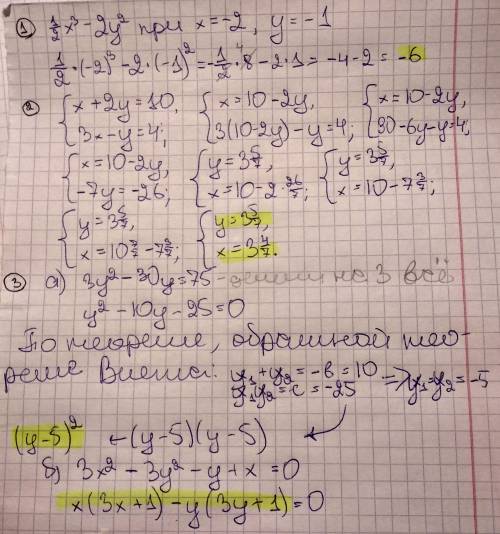 ① 1/2 x³ - 2y² при x = -2, y = -1
1/2 · (-2)³ - 2 · (-1)² = -1/2 · 8 - 2 · 1 = -4 - 2 = -6
② { x + 2y = 10, 3x - y = 4; { x = 10 - 2y, 3(10 - 2y) - y = 4; { x = 10 - 2y, 30 - 6y - y = 4;
{ x = 10 - 2y, -7y = -26; { y = 3 5/7, x = 10 - 2 · 26/7; { y = 3 5/7, x = 10 - 7 3/7;
{ y = 3 5/7, x = 10 7/7 - 7 3/7; { y = 3 5/7, x = 3 4/7.
③ а) 3y² - 30y = 75 - делим на 3 всё
y² - 10y - 25 = 0
По теореме, обратной тео-
реме Виета: y₁ + y₂ = -b = 10
y₁y₂ = c = -25 => y₁ = y₂ = -5
(y-5)² ← (y-5)(y-5)
б) 3x² - 3y² - y + x = 0
x(3x+1) - y(3y+1) = 0